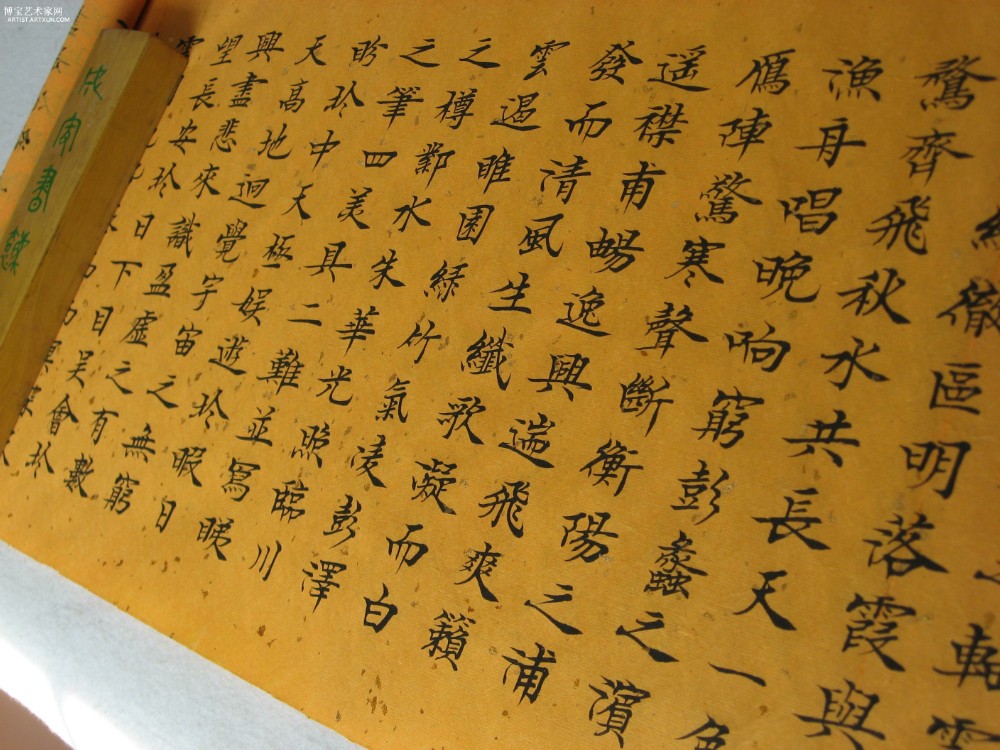 博宝艺术家网
ARTIST.ARTXUN.COM
軸雲
徹區明落霞與
鶩齊飛秋水共長天一色
漁舟唱晚响窮彭蠡之濱
鴈陣驚寒聲斷衡陽之浦
遥襟甫暢逸興遄飛爽籟
發而清風生纖歌凝而白
雲遏睢園緑竹氣凌彭澤
之樽鄴水朱華光照臨川
之筆四美具二難並寫睇
盼於中天極娛遊於暇日
天高地迥覺宇宙之無窮
興盡悲來識盈虛之有數
望長安於日下目吳會於
雲
書